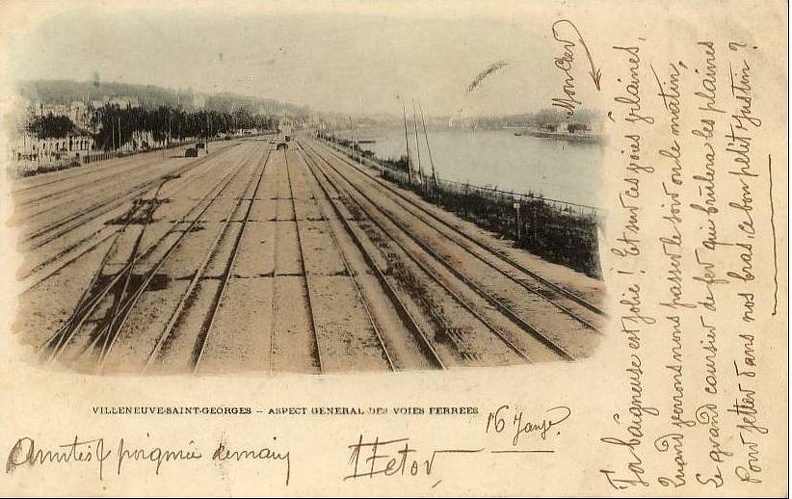 Mon cher
Ta baigneuse est jolie ! Et sur ces voies planes,
Quand verrons nous passer le soir ou le matin,
Le grand coursier de fer qui brûlera les plaines
Pour jetter dans nos bras ce bon petit Justin ?
VILLENEUVE-SAINT-GEORGES — ASPECT GENERAL DES VOIES FERREES
16 Janv.
poignée de main